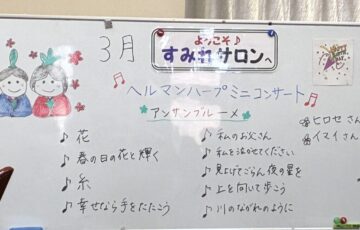 3月
ようこそ♪
すみれサロンへ
♬ヘルマンハープミニコンサート♬
アンサンブルーメ
♪花
♪春の日の花と輝く
♪糸
♪幸せなら手をたたこう
♪私のお父さん
♪私を泣かせてください
♪見上げてごらん夜の星を
♪上を向いて歩こう
♪川のながれのように
ヒロセさん
イマイさん